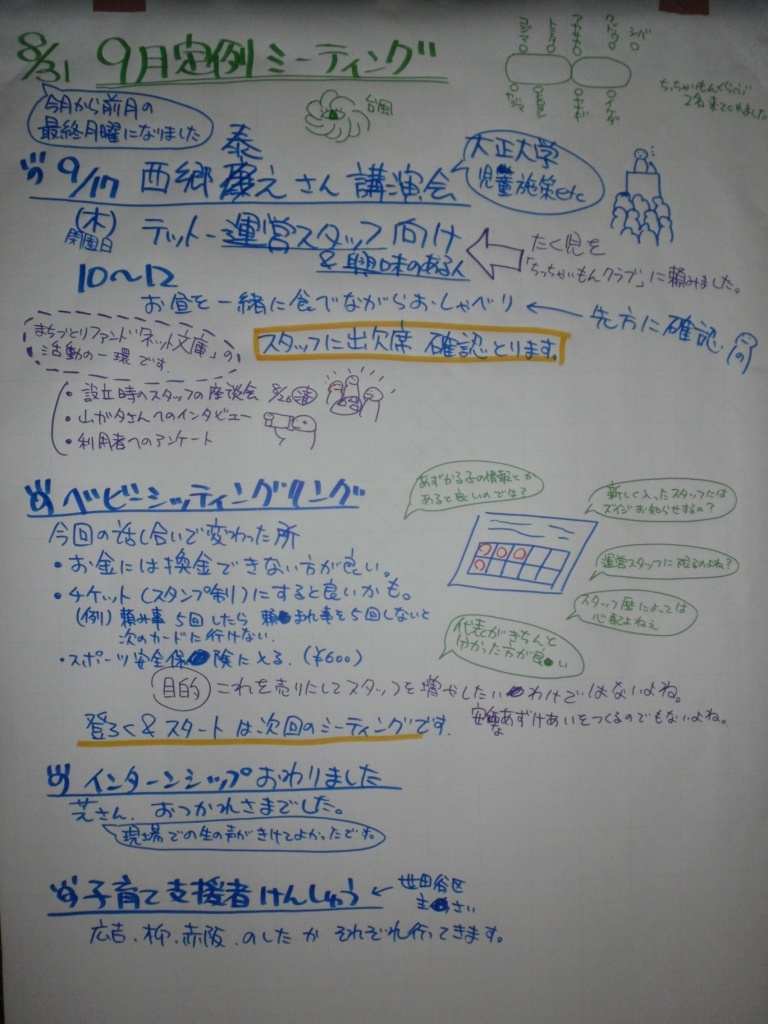 8/31 9月定例ミーティング
今月から前月の
最終月曜になりました
台風
ちっちゃいもんくらぶ
2名来てくれました
9/17 西郷泰之さん講演会
大正大学
児童施策etc
(木)
開園日
テットー運営スタッフ向け
&興味のある人
たく児を
「ちっちゃいもんクラブ」に頼みました。
10〜12
お昼を一緒に食べながらおしゃべり ← 先方に確認。
まちづくりファンド「ネット文庫」の
活動の一環です。
スタッフに出欠席 確認とります。
・設立時のスタッフの座談会 8/26
・山がタさんへのインタビュー
・利用者へのアンケート
ベビーシッティングリング
あずかる子の情報とか
あると良いのでは?
新しく入ったスタッフには
ズイジお知らせするの?
今回の話し合いで変わった所
・お金には換金できない方が良い。
・チケット(スタンプ制)にすると良いかも。
(例) 頼み事5回したら 頼まれ事を5回しないと
次のカードに行けない。
・スポーツ安全保険にとる。(¥600)
運営スタッフに限るのよね?
スタッフ歴によっては
心配よねぇ
代表がきちんと
分かった方が良い
目的 これを売りにしてスタッフを増やしたいわけではないよね。
安易なあずけあいをつくるのでもないよね。
登ろく&スタートは次回のミーティングです。
インターンシップおわりました
芝さん、おつかれさまでした。
現場での生の声がきけてよかったです。
子育て支援者けんしゅう ← 世田谷区
主さい
広吉、柳、赤阪、のしたが それぞれ行ってきます。